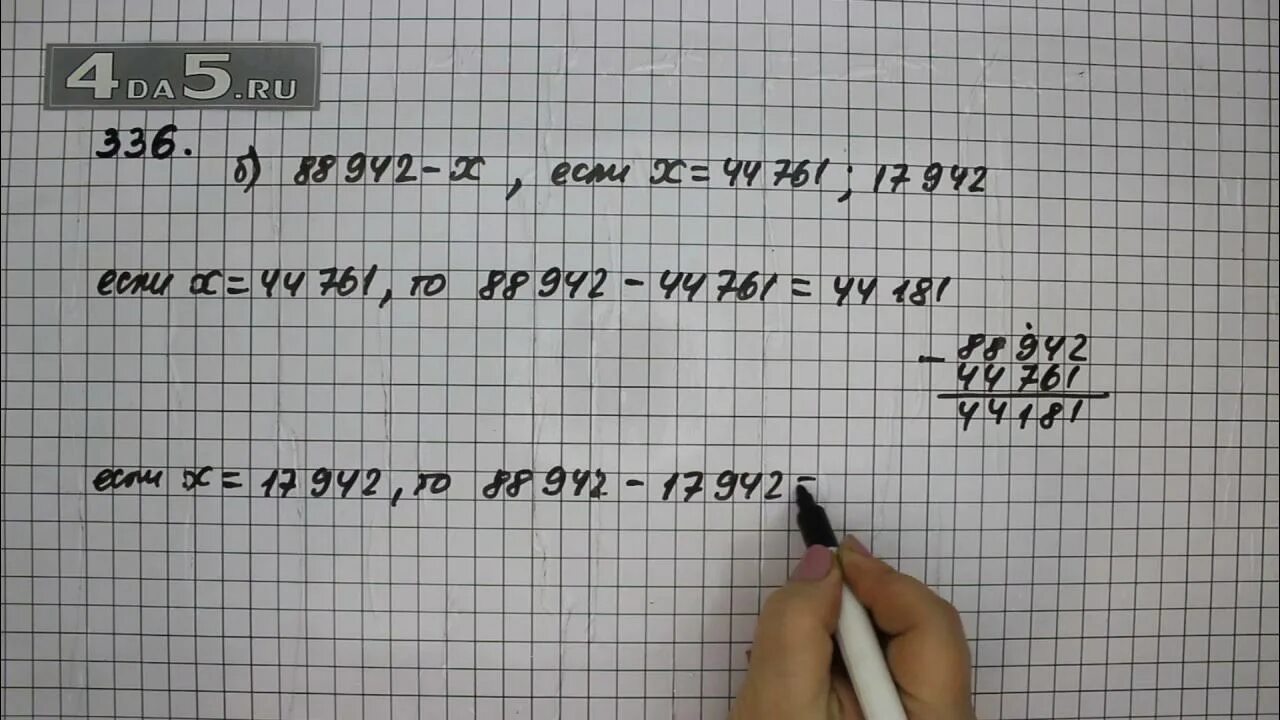 4DA5.RU
336.
б) 88 942 - x , если x = 44 761 ; 17 942
если x = 44 761 , то 88 942 - 44 761 = 44 181
- 88 942
44 761
44181
если x = 17 942 , то 88 942 - 17 942 =